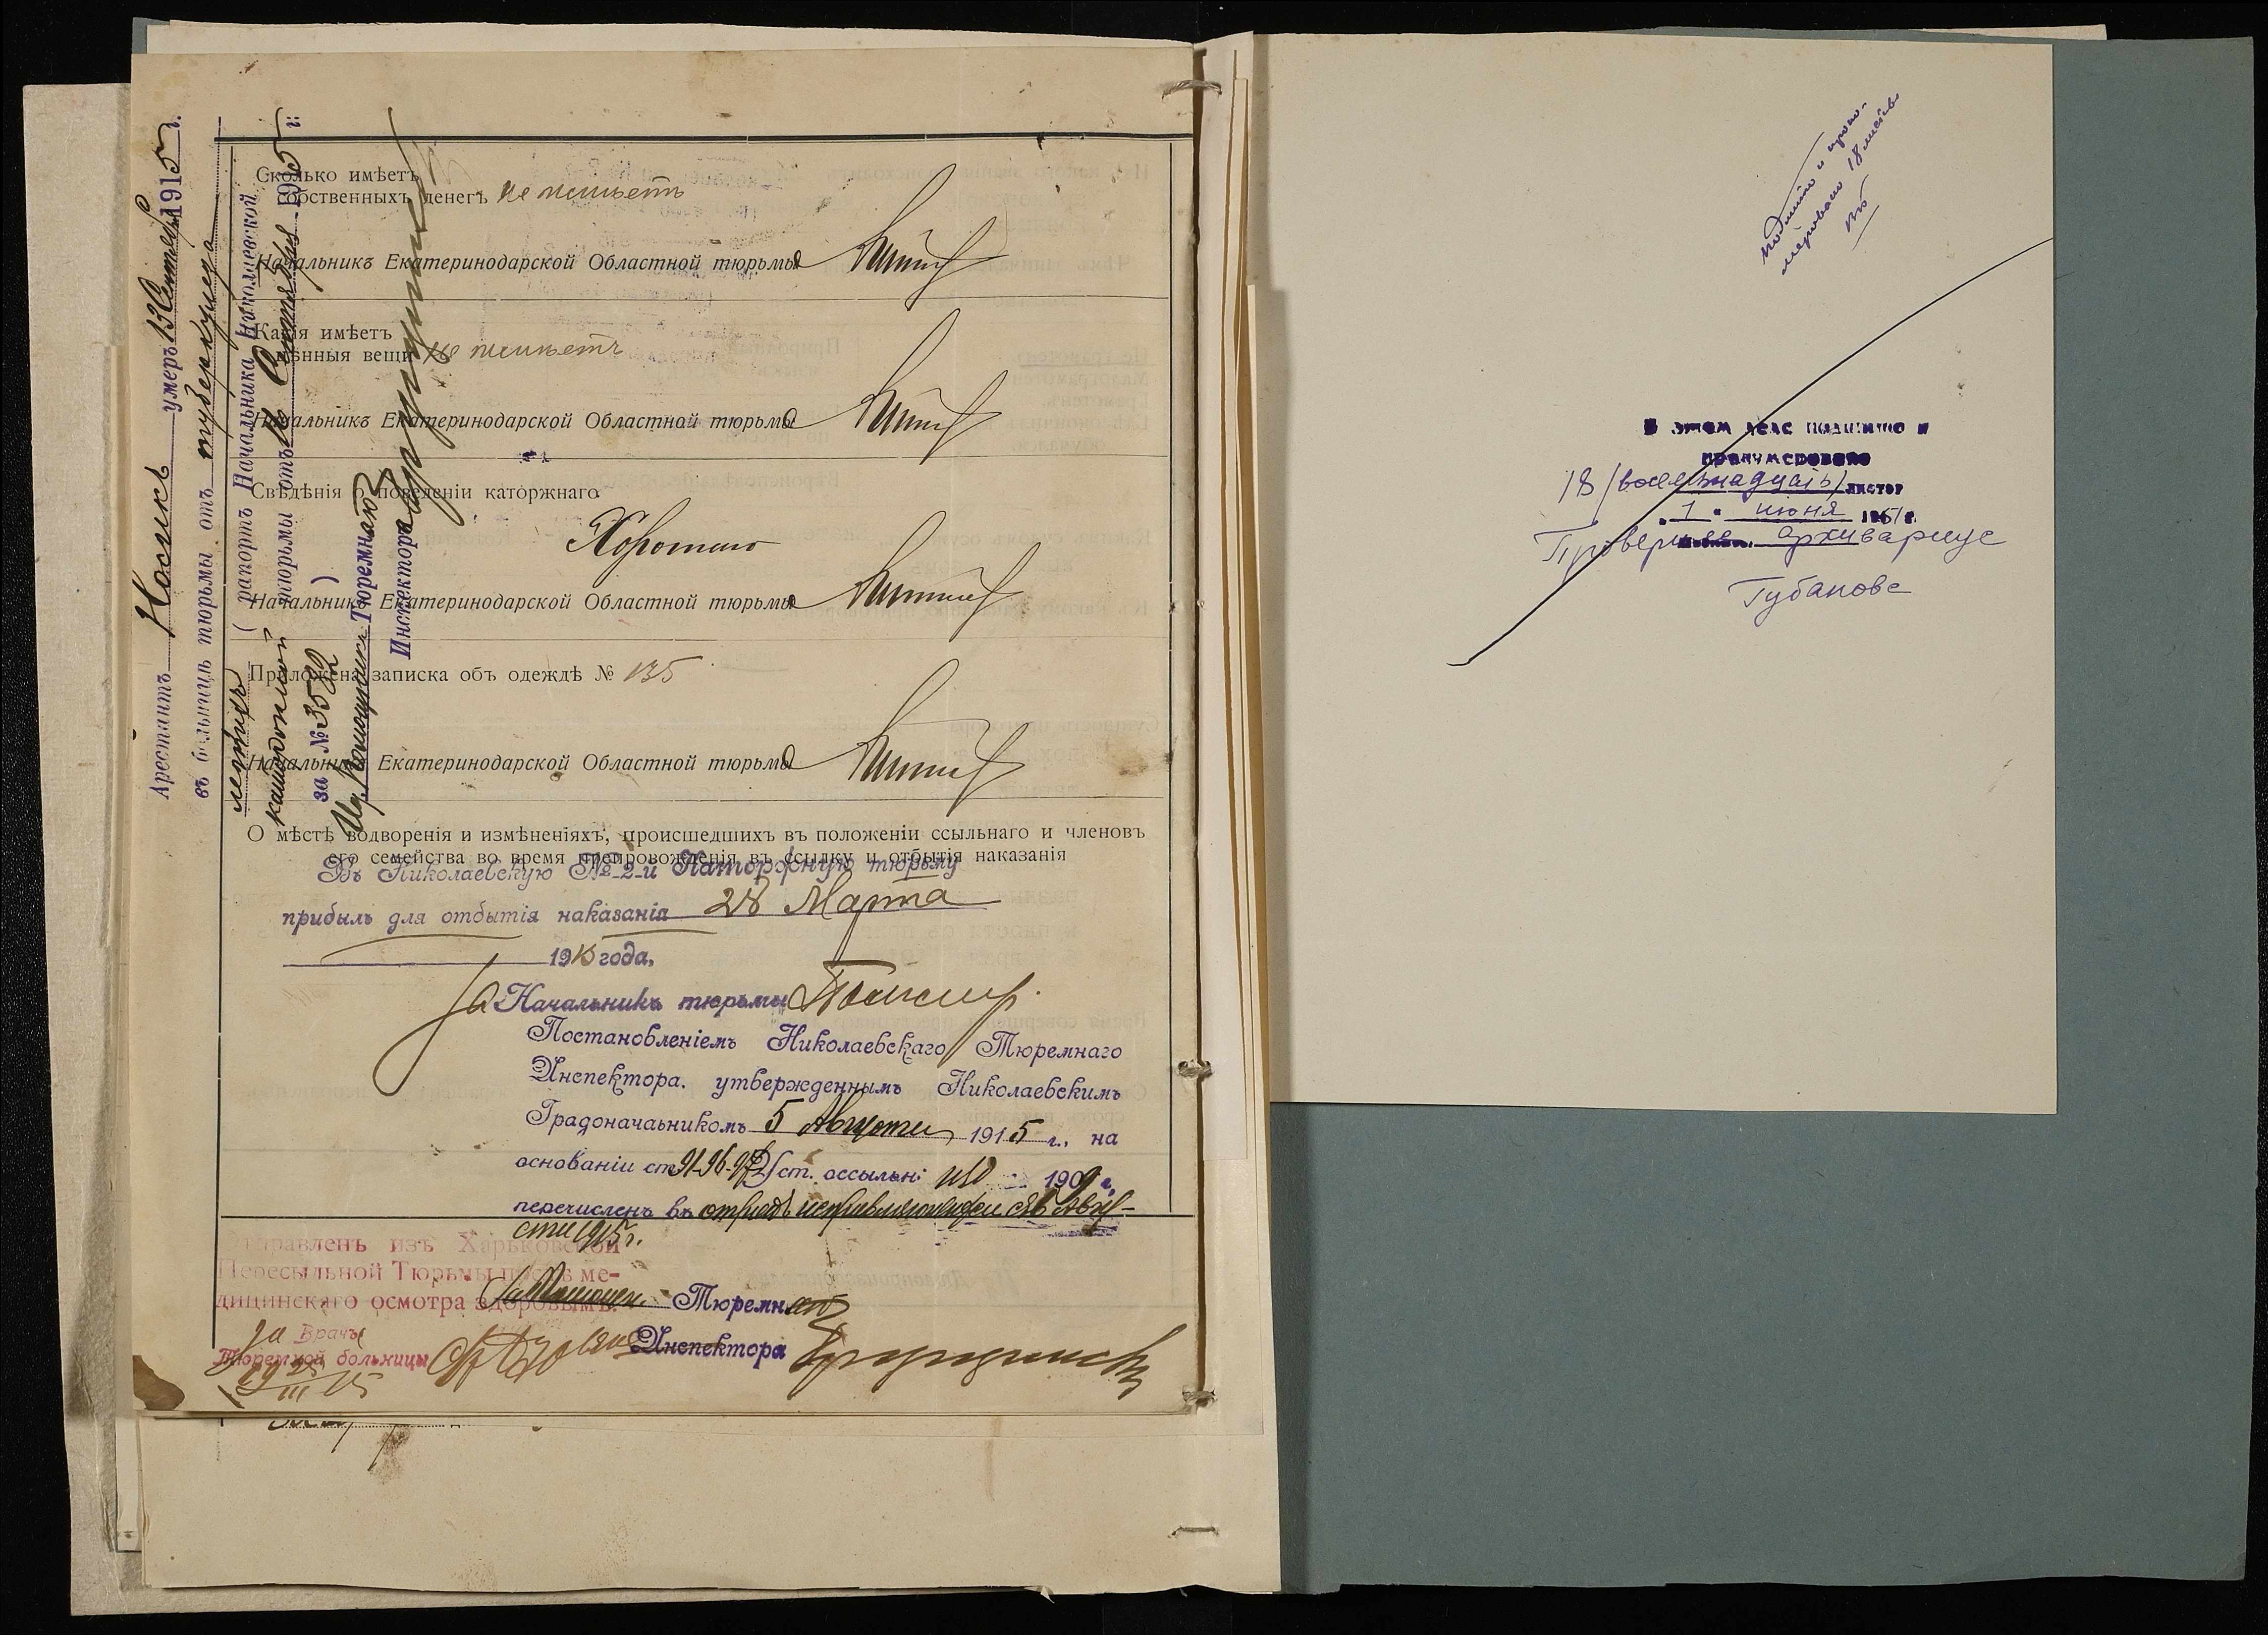 Сколько имѣетъ
собственныхъ денегъ не имѣетъ
Начальникъ Екатеринодарской Областной тюрьмы
Какія имѣетъ
цѣнныя вещи не имѣетъ
Начальникъ Екатеринодарской Областной тюрьмы
Свѣдѣнія о поведеніи каторжнаго.
Хорошаго
Начальникъ Екатеринодарской Областной тюрьмы
Приложена записка объ одеждѣ № 135
Начальникъ Екатеринодарской Областной тюрьмы
О мѣстѣ водворенія и измѣненіяхъ, происшедшихъ въ положеніи ссыльнаго и членовъ
его семейства во время препровожденія въ ссылку и отбытія наказанія
Въ Николаевскую № 2-й Каторжную тюрьму
прибылъ для отбытія наказанія 28 Марта
1915 года.
За Начальникъ тюрьмы
Постановленіемъ Николаевскаго Тюремнаго
Инспектора. утвержденнымъ Николаевскимъ
Градоначаьникомъ 5 Августа 1915 г., на
основаніи ст. 91-96-97 Уст. оссыльн: изд 1909 г.
перечисленъ въ отрядъ исправляющихся съ 5 Авгу-
ста 1915 г.
Отправленъ изъ Харьковской
Пересыльной Тюрьмы послѣ ме-
дицинскаго осмотра здоровымъ.
За Врачъ
Тюремной больницы
19 25/III 15
Тюремнаго
Инспектора
Арестантъ Носикъ умеръ 13 Сентября 1915 г.
въ больницѣ тюрьмы отъ туберкулеза
легкихъ ( рапортъ Начальника Николаевской
каторжной тюрьмы отъ Сентября 1915 г.
за № 3532 )
Ид. Помощника Тюремнаго
Инспектора
Подшито и прону-
меровано 18 листов
В этом деле подшито и
пронумеровано
18 (восемнадцать) листов
"1" июня 1951 г.
Проверила архивариус
Губанова